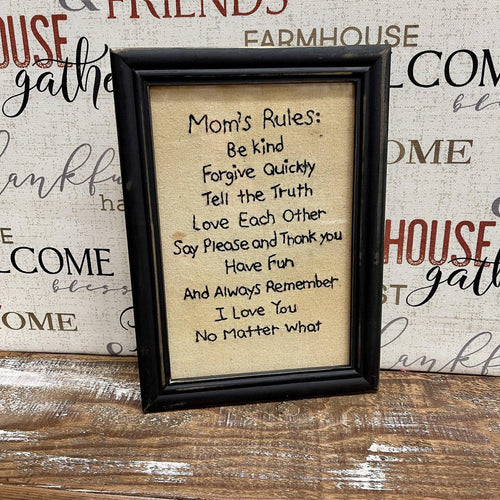 & FRIENDS
FARMHOUSE
HOUSE
gather
COME
bless
thankful
ha
HOME
Mom's Rules:
Be kind
Forgive Quickly
Tell the Truth
Love Each Other
Say Please and Thank you
Have Fun
And Always Remember
I Love You
No Matter What
HOUSE
gather
LCOME
bless
HOME
EST
thankful